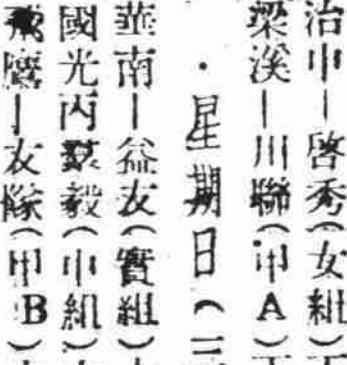 治中—啓秀(女組)
梁溪—川聯(甲A)
·星期日(三
華南—益友(實組)
國光丙毅(中組)
飛鷹—友隊(甲B)